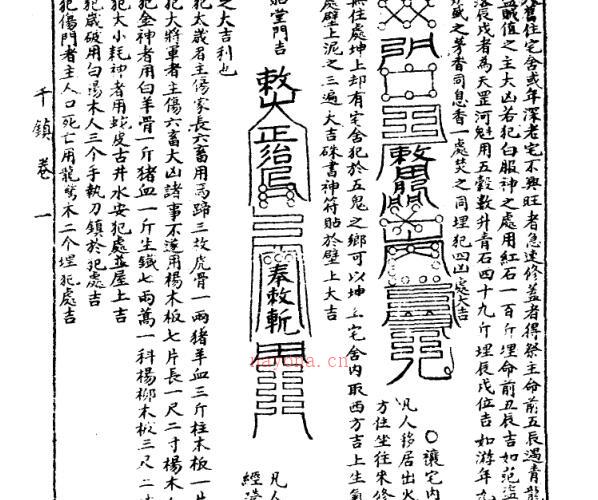 舊住宅舍或年深老宅不興旺者急速修蓋者得祭主命前五辰遇青龍
盜賊值之主大凶若犯白服神之處用紅石一百斤埋命前丑辰吉如犯盜
落辰戌者為天罡河魁用五穀數升青石四十九斤埋辰戌位吉如游年
茅香同息香一處焚之同埋犯四凶處大吉
敕
〇讓宅內
凡人移居出火
方位坐往來修
無住處坤上却有宅舍犯於五鬼之鄉可以坤上宅舍內取西方吉上生氣
處壁上泥之三遍大吉硃書神符貼於壁上大吉
敕
正治
奉敕斬
凡人
堂門吉
之大吉利也
犯太歲者主傷家長六畜用馬蹄三枚虎骨一兩猪羊血三斤柱木板一片
犯大將軍者主傷六畜大凶諸事不遂用楊木板七片長一尺二寸楊木
犯金神者用白羊骨一斤猪血一斤生鐵七兩萬一科楊柳木板三尺二
犯大小耗神者用蛇皮古井水安犯處並屋上吉
犯歲破用白楊木人三个手執刀鎮於犯處吉
犯傷門者主人口死亡用龍鴛木二个埋犯處吉
千鎮卷一
nayona.cn